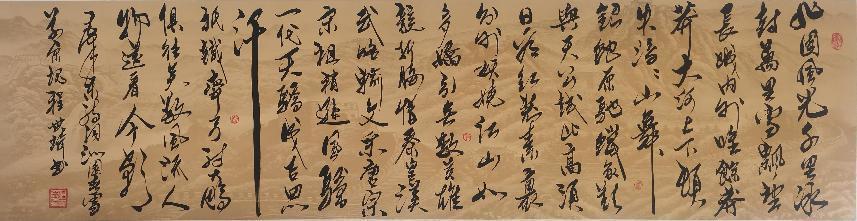 北国风光千里冰
封万里雪飘望
长城内外唯余莽
莽大河上下顿
失滔滔山舞
银蛇原驰蜡象欲
与天公试比高须
日看红装素裹
分外妖娆江山如
多娇引无数英雄
竞折腰惜秦皇汉
武略输文采唐宗
宋祖稍逊风骚
一代天骄成吉思
汗
只识弯弓射大雕
俱往矣数风流人
物还看今朝
沁园春雪